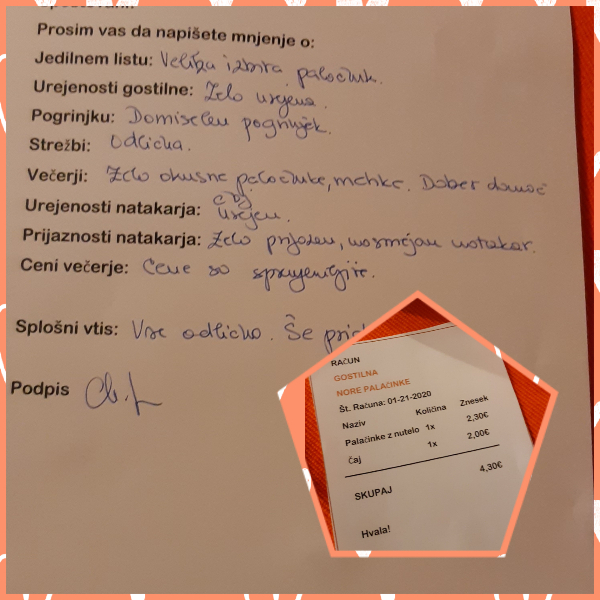 Prosim vas da napišete mnjenje o:
Jedilnem listu: Velika izbira palačink.
Urejenosti gostilne: Zelo urejena.
Pogrinjku: Domiselen pogrinjek.
Strežbi: Odlična.
Večerji: Zelo okusne palačinke, mehke. Dober domač
čaj
Urejenosti natakarja: Urejen.
Prijaznosti natakarja: Zelo prijazen, nasmejan natakar.
Ceni večerje: Cene so sprejemljive.
Splošni vtis: Vse odlično. Še prid
Podpis
RAČUN
GOSTILNA
NORE PALAČINKE
Št. Računa: 01-21-2020
Naziv Količina Znesek
Palačinke z nutelo 1x 2,30€
Čaj 1x 2,00€
SKUPAJ 4,30€
Hvala!